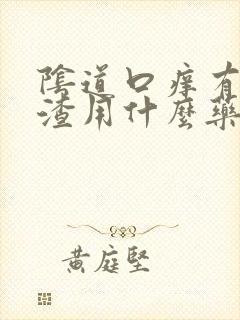 陰道口痒有
渣用什麼藥
黄庭堅